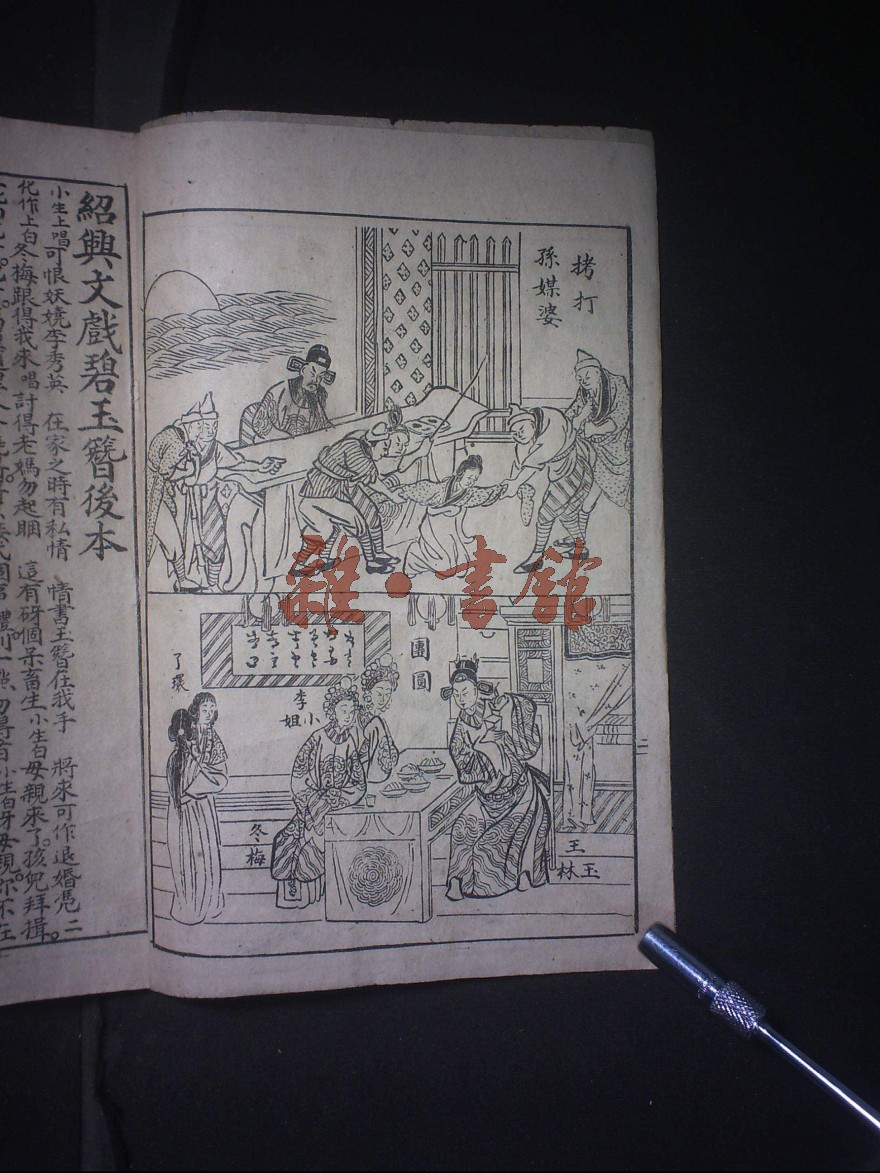 拷打
孫媒婆
團圓
李小姐
了環
冬梅
王玉林
雜·書館
紹興文戲碧玉簪後本
小生上唱可恨妖嬈李秀英 在家之時有私情 情書玉簪在我手 將來可作退婚凭 二
化作上白冬梅跟得我來 唱討得老媽勿起睏 這有砑個呆畜生 小生白母親來了。孩兒拜揖。